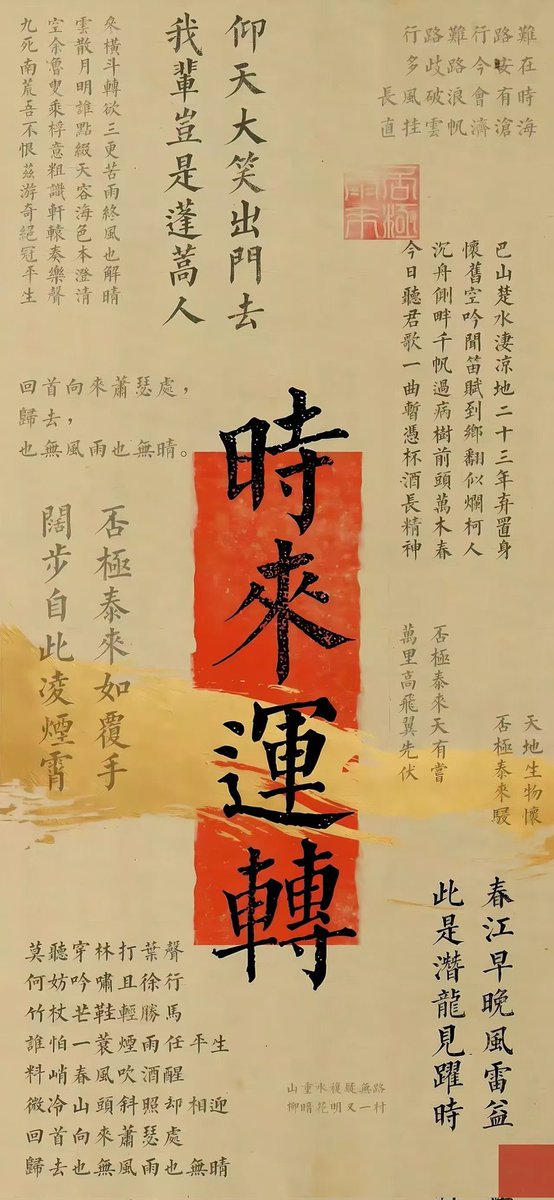 行路難行路難
多歧路今安在
長風破浪會有時
直挂雲帆濟滄海
仰天大笑出門去
我輩豈是蓬蒿人
參橫斗轉欲三更苦雨終風也解晴
雲散月明誰點綴天容海色本澄清
空余魯叟乘桴意粗識軒轅奏樂聲
九死南荒吾不恨茲游奇絕冠平生
巴山楚水淒凉地二十三年弃置身
懷舊空吟聞笛賦到鄉翻似爛柯人
沉舟側畔千帆過病樹前頭萬木春
今日聽君歌一曲暫憑杯酒長精神
回首向來蕭瑟處，
歸去，
也無風雨也無晴。
時來運轉
否極泰來如覆手
闊步自此凌煙霄
否極泰來天有嘗
萬里高飛翼先伏
天地生物懷
否極泰來駸
春江早晚風雷益
此是潛龍見躍時
莫聽穿林打葉聲
何妨吟嘯且徐行
竹杖芒鞋輕勝馬
誰怕一蓑煙雨任平生
料峭春風吹酒醒
微冷山頭斜照却相迎
回首向來蕭瑟處
歸去也無風雨也無晴
山重水複疑無路
柳暗花明又一村